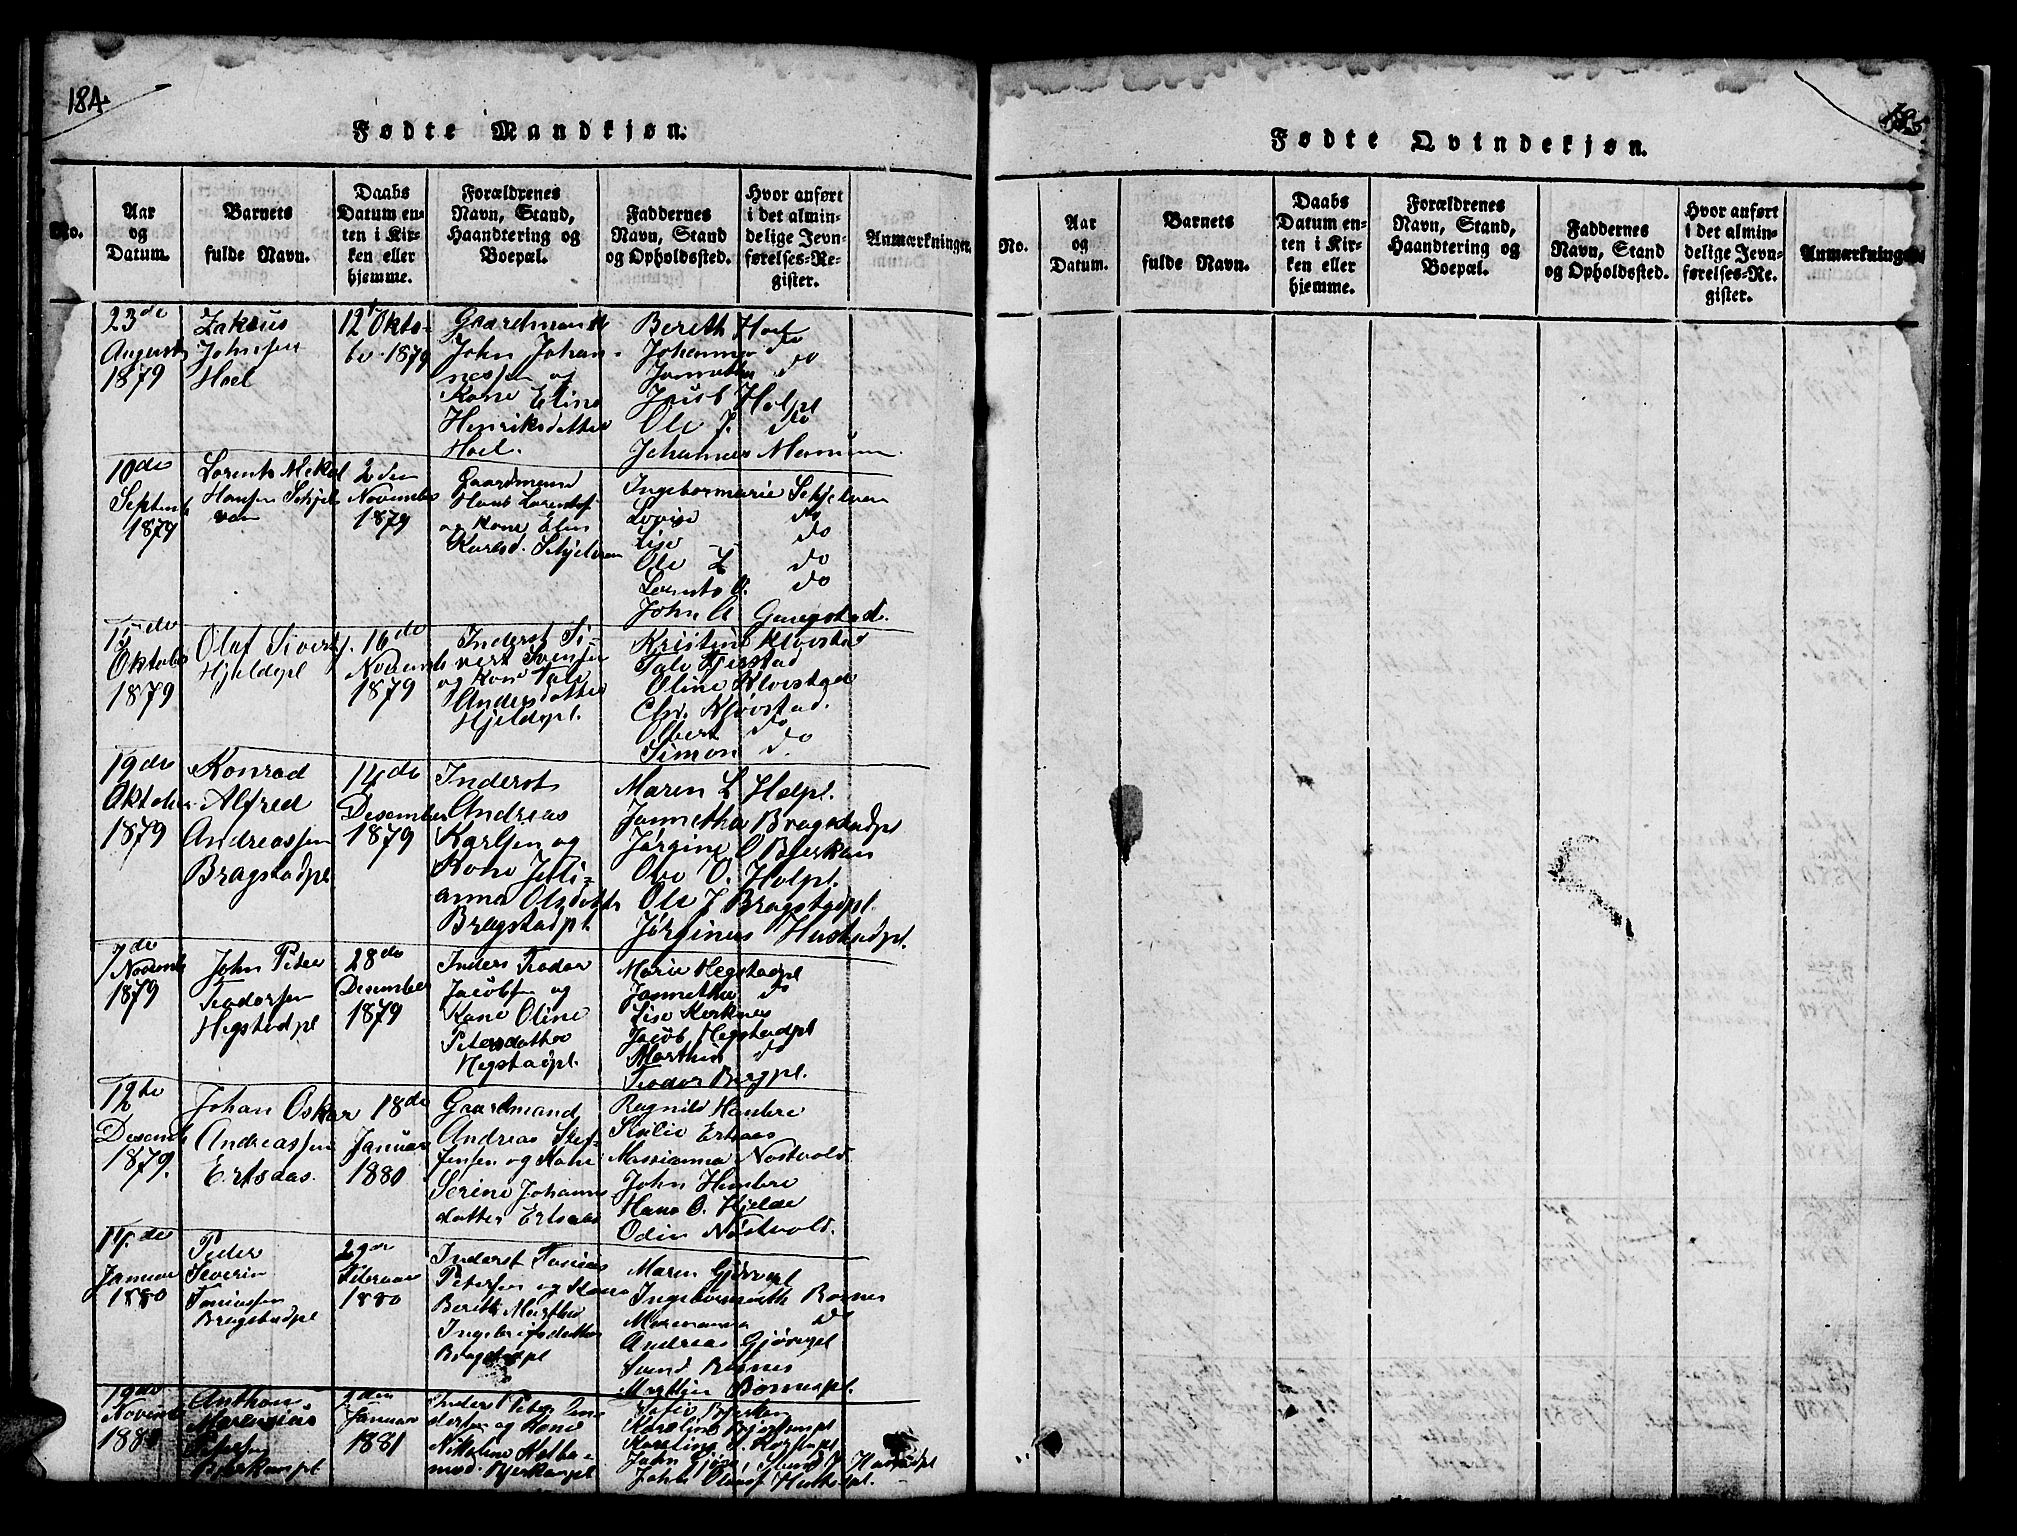 184.
Fødte Mandkjøn.
No.
Aar
og
Datum.
Barnets
fulde Navn.
Daabs
Datum en-
ten i Kir-
ken eller
hjemme.
Forældrenes
Navn, Stand,
Haandtering og
Boepæl.
Faddernes
Navn, Stand
og Opholdssted.
Hvor anført
i det almin-
delige Jevn-
førelses-Re-
gister.
Anmærkninger.
23de
August
1879
Zakeus
Johnsen
Hoel
12 Okto-
be. 1879
Gaardmand
John Johan-
nessen og
Kone Eline
Henriksdatter
Hoel.
Bereth Hoel
Johanna do
Jannetha do
Holpl
Ole J. do
Johannes
10de
Septemb
1879
Lorents Mekal
Hansen Sehjel
van
2den
November
1879
Gaardmand
Hans Lorentsf
og Kone Elen
Karlsd. Sehjelvan
Ingebormarie Sehjelvan
Lovise do
Lise do
Ole L do
Lorents O. do
John A Gangstad.
15de
Oktober
1879
Olaf Sivertf.
Hjeldepl
16de
Novemb
1879
Inderst Si-
vert Svensen
og Kone Tale
Andersdatter
Hjeldepl.
Kristine Klovstad
Tale Fjerstad
Oline Klovstad
Chr. Klovstad.
Albert do
Simon do
19de
Oktober
1879
Konrad
Alfred
Andreassen
Bragstadpl
14de
Desember
1879
Inderst
Andreas
Karlsen og
Kone Juli-
anna Olsdatter
Bragstadpl
Maren L Holpl.
Jannetha Bragstadpl
Jørgine O Bjerkan
Ove O. Holpl.
Ole J Bragstadpl.
Jørginus Hustadpl.
7de
Novemb
1879
John Peter
Teodorsen
Hegstadpl
28de
Desember
1879
Inders Teodor
Jacobsen og
Kone Oline
Petersdatter
Hegstadpl.
Marie Hegstadpl
Jannetha do
Lise Kerknes
Jacob Hegstadpl
Morthen do
Teodor Bergpl.
12te
Desemb
1879.
Johan Oskar
Andreassen
Ertsaas.
18de
Januar
1880
Gaardmand
Andreas Stef-
fensen og Kone
Serine Johanns
datter Ertsaas
Ragnild Hembre
Ertsaas
Marianna Nøstvold.
John Hembre
Hans O. Hjelde
Odin Nøstvold.
14de
Januar
1880
Peder
Severin
Toniussen
Bragstadpl
29de
Februar
1880
Inderst Tonius
Petersen og Kone
Bereth Martha
Ingebrigtsdatter
Bragstadpl
Maren Gjørvpl
Ingeboranneth Bornes
Marianna do
Andreas Gjørvpl
Svend Bornes
Bornespl.
19de
Novemb
188
Anthon
Marensius
Petersen
Bjerkanpl
2den
Januar
1881
Inderst Peter
og Kone
Nikoline
Bjerkanpl
Bjerkan
Karoline Bjerkanpl
Hustadpl
Johan Olausf Hustadpl.
Fødte Qvindekjøn.
No.
Aar
og
Datum.
Barnets
fulde Navn.
Daabs
Datum en-
ten i Kir-
ken eller
hjemme.
Forældrenes
Navn, Stand,
Haandtering og
Boepæl.
Faddernes
Navn, Stand
og Opholdssted.
Hvor anført
i det almin-
delige Jevn-
førelses-Re-
gister.
Anmærkninger.